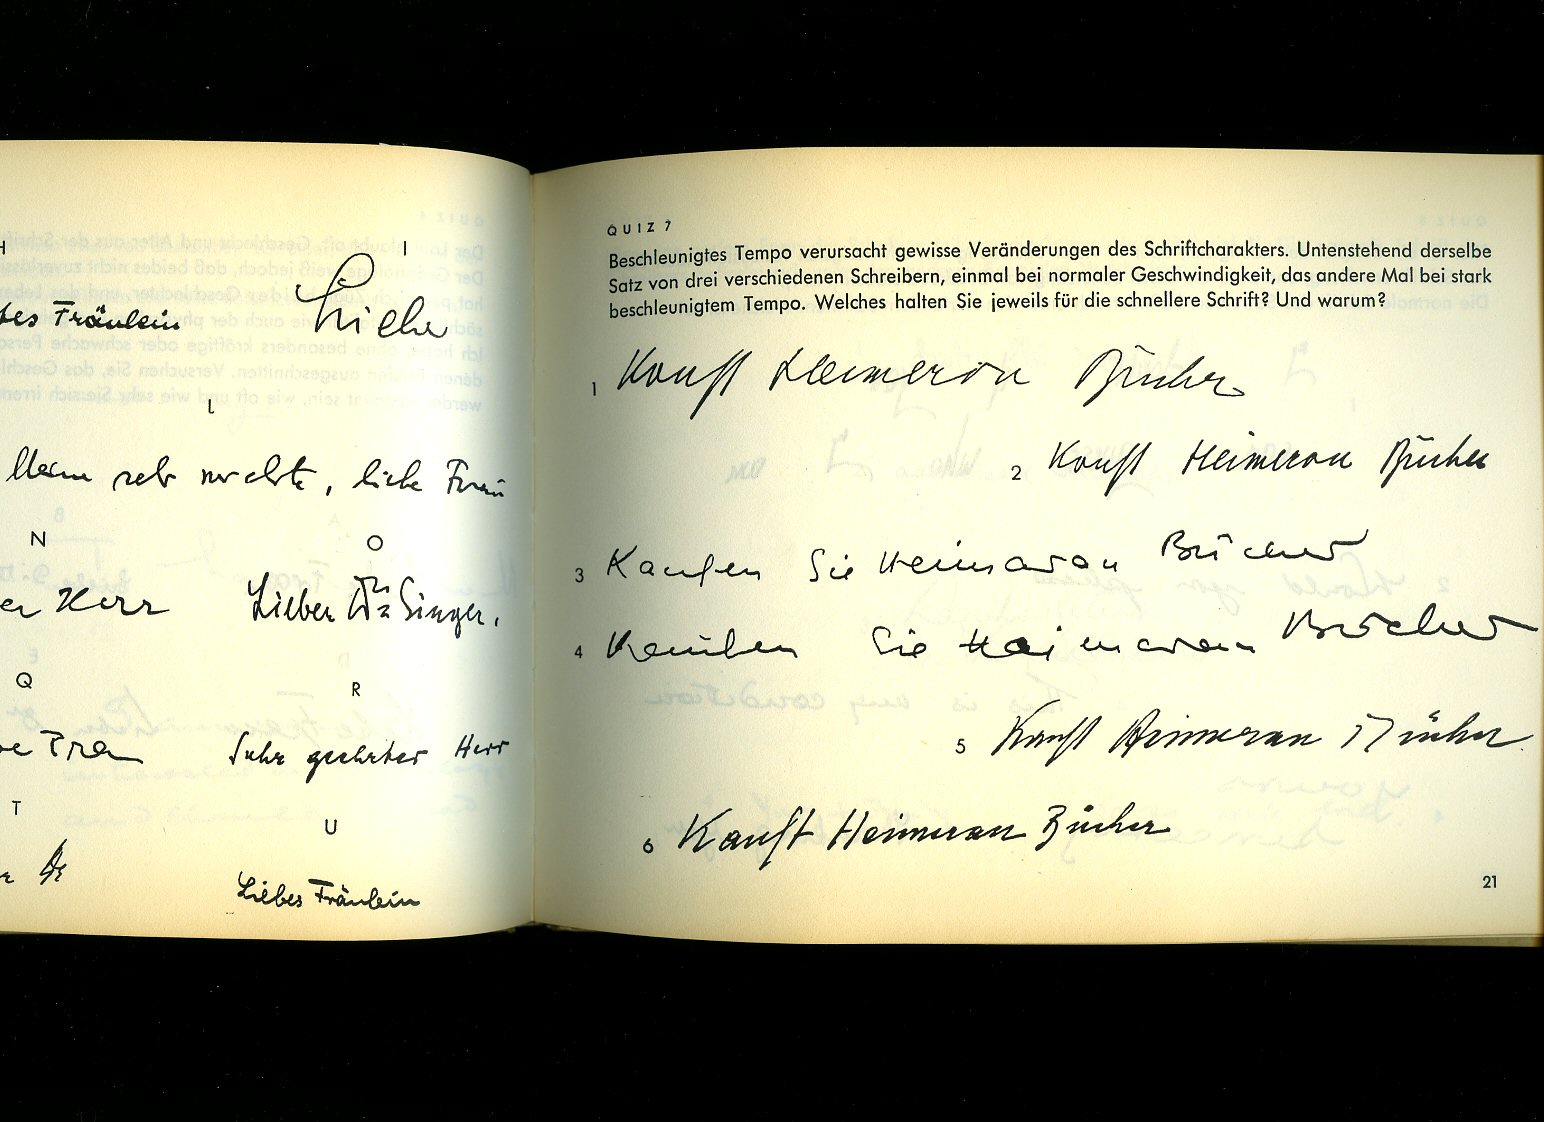 H
I
tes Fräulein
Liebe
L
Meine sehr verehrte, liebe Frau
N
O
er Herr
Lieber Dr. Singer,
Q
R
Sehr geehrter Herr
T
U
Liebes Fräulein
QUIZ 7
Beschleunigtes Tempo verursacht gewisse Veränderungen des Schriftcharakters. Untenstehend derselbe
Satz von drei verschiedenen Schreibern, einmal bei normaler Geschwindigkeit, das andere Mal bei stark
beschleunigtem Tempo. Welches halten Sie jeweils für die schnellere Schrift? Und warum?
1 Kauft Heimeran Bücher
2 Kauft Heimeran Bücher
3 Kaufen Sie Heimeran Bücher
4 Kaufen Sie Heimeran Bücher
5 Kauft Heimeran Bücher
6 Kauft Heimeran Bücher
21